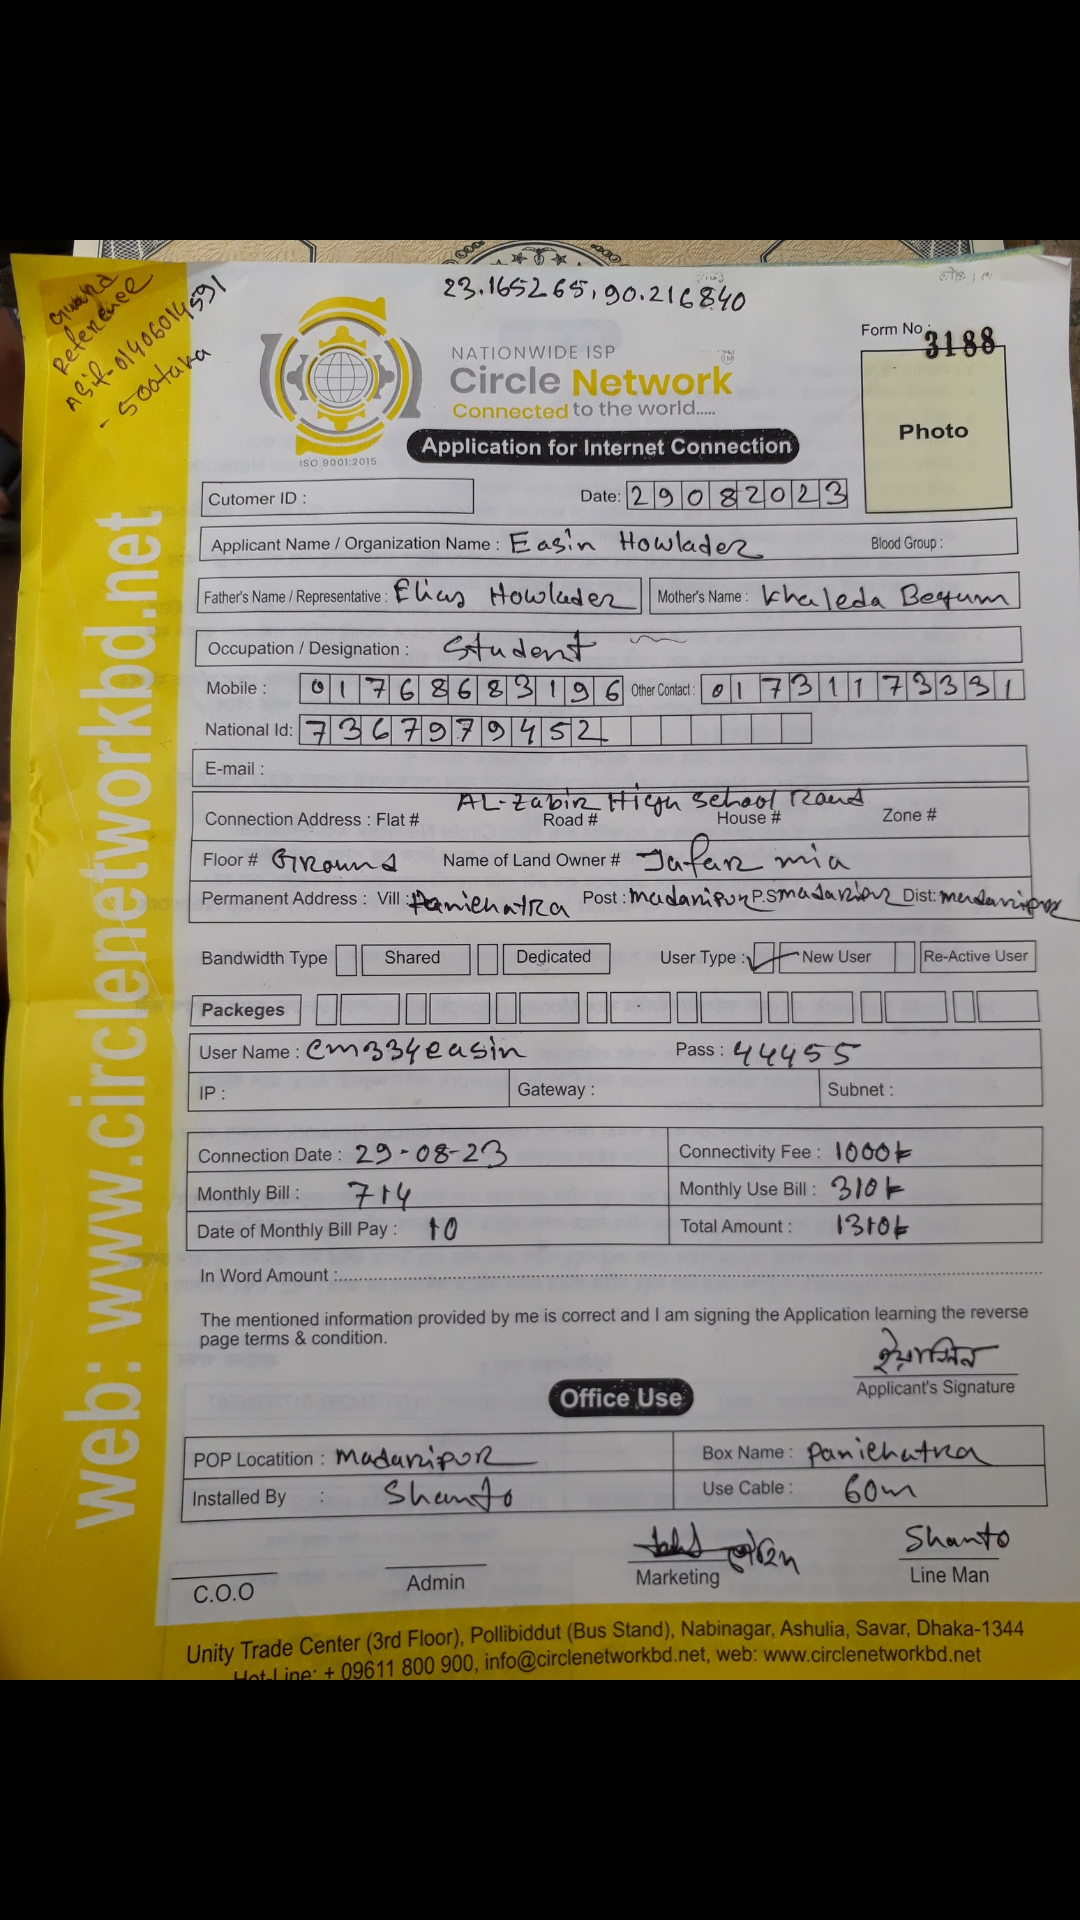 23.165265, 90.216840
Guard
Reference
Asif-01406014591
- 500taka
Form No : 3188
NATIONWIDE ISP
Circle Network
Connected to the world.....
ISO 9001:2015
Photo
Application for Internet Connection
Cutomer ID :
Date: 29082023
Applicant Name / Organization Name : Easin Howlader Blood Group :
Father's Name / Representative : Elias Howlader Mother's Name : Khaleda Begum
Occupation / Designation : Student
Mobile : 01768683196 Other Contact : 01731173331
National Id: 7367979452
E-mail :
AL-Zabir High School Road
Connection Address : Flat # Road # House # Zone #
Floor # Ground Name of Land Owner # Jafar mia
Permanent Address : Vill : Panichatra Post : madaripur P.S madaripur Dist: madaripur
Bandwidth Type Shared Dedicated User Type : New User Re-Active User
Packeges
User Name : cm334easin Pass : 44455
IP : Gateway : Subnet :
Connection Date : 29-08-23 Connectivity Fee : 1000/-
Monthly Bill : 714 Monthly Use Bill : 310/-
Date of Monthly Bill Pay : 10 Total Amount : 1310/-
In Word Amount :
The mentioned information provided by me is correct and I am signing the Application learning the reverse
page terms & condition.
ইয়াসিন
Applicant's Signature
Office Use
POP Locatition : Madaripur Box Name : Panichatra
Installed By : Shanto Use Cable : 60m
Shanto
C.O.O Admin Marketing Line Man
Unity Trade Center (3rd Floor), Pollibiddut (Bus Stand), Nabinagar, Ashulia, Savar, Dhaka-1344
Hot-Line: + 09611 800 900, info@circlenetworkbd.net, web: www.circlenetworkbd.net
web: www.circlenetworkbd.net